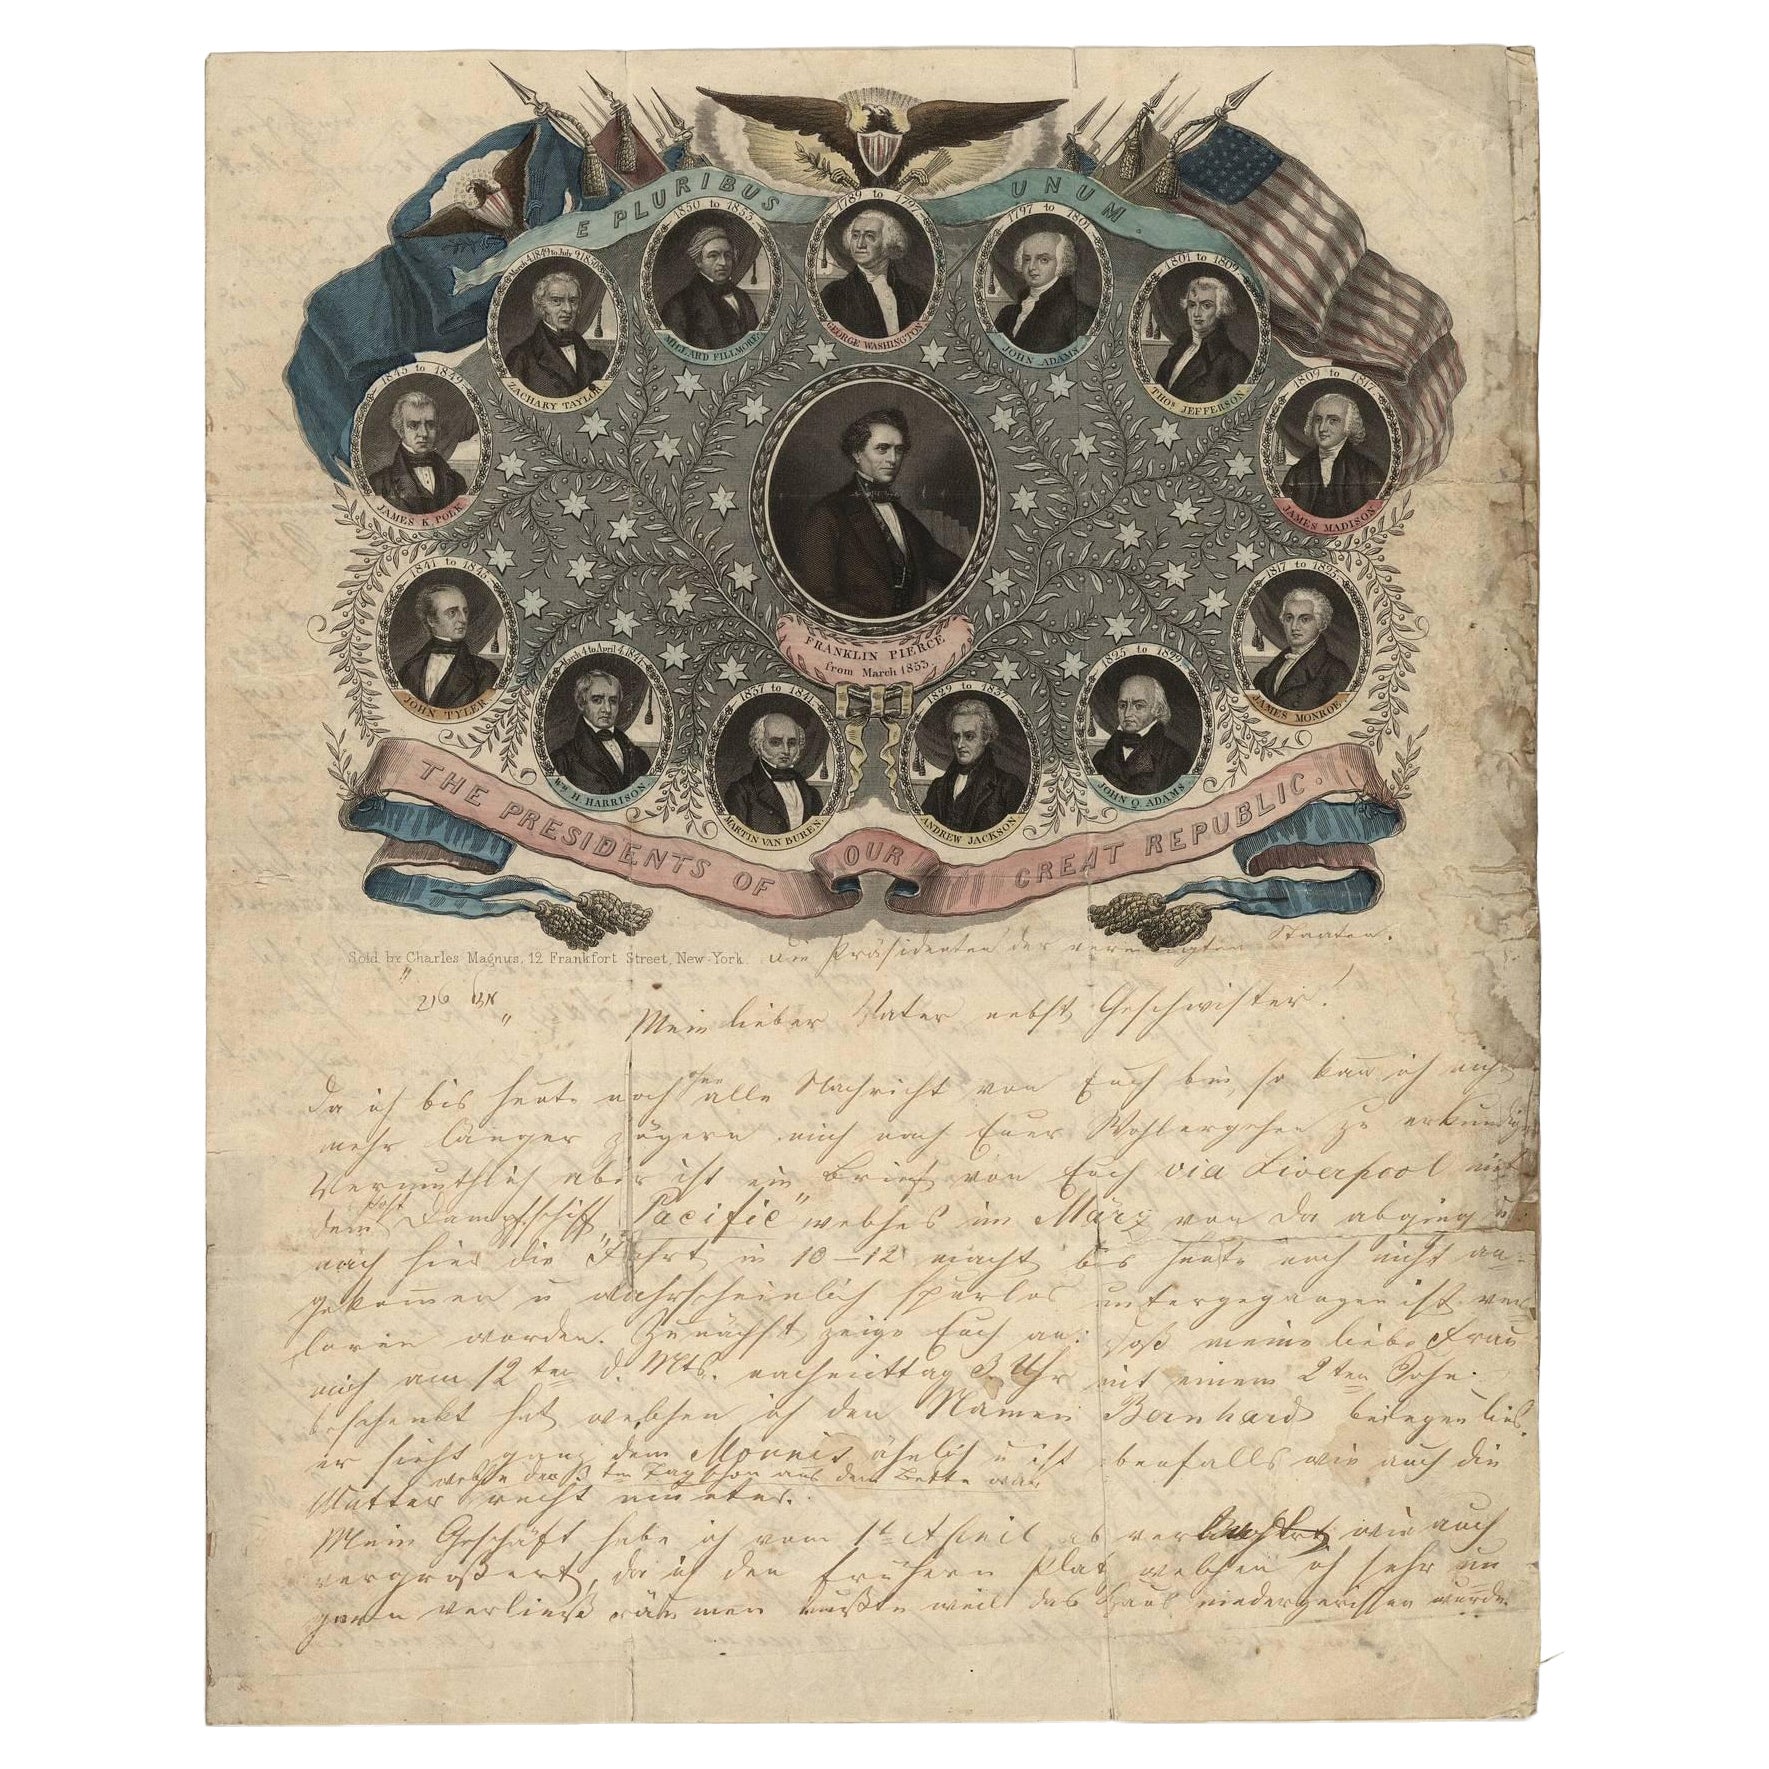 E PLURIBUS UNUM
1789 to 1797
GEORGE WASHINGTON.
1797 to 1801
JOHN ADAMS
1801 to 1809
THOS JEFFERSON
1809 to 1817
JAMES MADISON
1817 to 1825
JAMES MONROE.
1825 to 1829
JOHN Q ADAMS
1829 to 1837
ANDREW JACKSON
1837 to 1841
MARTIN VAN BUREN.
March 4 to April 4, 1841
WM H HARRISON.
1841 to 1845
JOHN TYLER
1845 to 1849
JAMES K. POLK
March 4, 1849 to July 9 1850
ZACHARY TAYLOR
1850 to 1853
MILLARD FILLMORE
FRANKLIN PIERCE
from March 1853
THE PRESIDENTS OF OUR GREAT REPUBLIC.
Sold by Charles Magnus, 12 Frankfort Street, New-York.
die Präsidenten der vereinigten Staaten.
Mein lieber Vater nebst Geschwister!
Da ich bis heute noch ohne alle Nachricht von Euch bin, so kann ich nicht
mehr länger zögern mich nach Euer Wohlergehen zu erkundig
Vermuthlich aber ist ein Brief von Euch via Liverpool mit
dem Post Dampfschiff „Pacific" welches im März von da abging u
nach hier die Fahrt in 10–12 macht bis heute noch nicht an-
gekommen u wahrscheinlich spurlos untergegangen ist ver
loren worden. Zunächst zeige Euch an: daß meine liebe Frau
mich am 12ten d. Mts. nachmittag 3 Uhr mit einem 2ten Sohn
beschenkt hat welchen ich den Namen Bernhard beilegen lies.
er sieht ganz dem Morris ähnlich u ist ebenfalls wie auch die
Mutter welche den 3ten Tag schon aus dem Bette war recht munter.
Mein Geschäft habe ich vom 1t April ab wie auch
vergroßert, da ich den frühern Platz welchen ich sehr un
gern verließ räumen mußte weil das Haus niedergerissen wurde